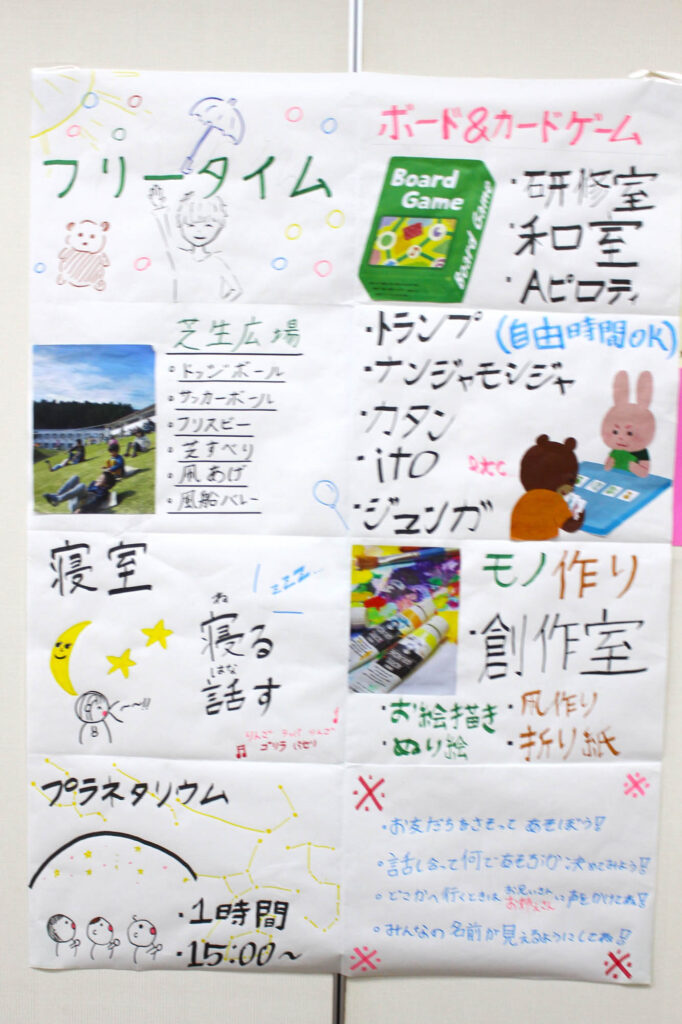 フリータイム
芝生広場
ドッジボール
サッカーボール
フリスビー
芝すべり
凧あげ
風船バレー
寝室
zzz...
ね
寝る
はな
話す
りんご
りんご
ゴリラ
プラネタリウム
・1時間
・15:00〜
ボード&カードゲーム
Board
Game
Board Game
・研修室
・和室
・Aピロティ
・トランプ (自由時間OK)
・ナンジャモンジャ
・カタン
・ito
・ジェンガ
モノ作り
・創作室
・お絵描き
・ぬり絵
・凧作り
・折り紙
・お友だちをさそって あそぼう!!
・話し合って何であそぶか 決めてみよう!!
・どこかへ行くときは お兄さん お姉さん に声をかけてね!!
・みんなの名前が見えるようにしてね!!